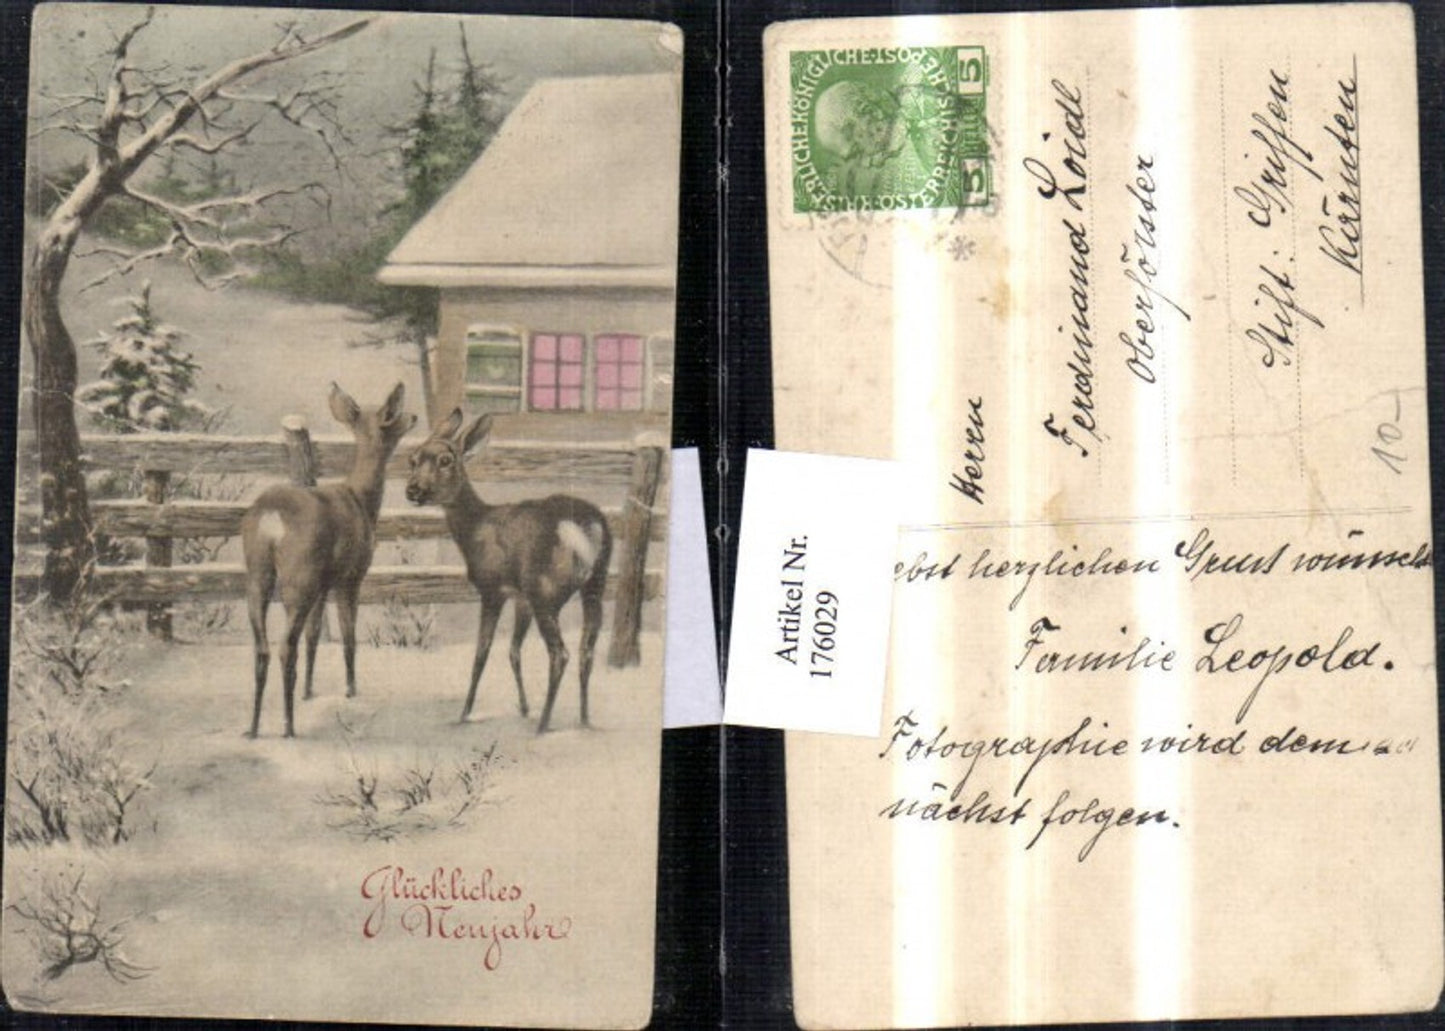 Glückliches
Neujahr
Artikel Nr.
176029
KAISERLICHE KÖNIGLICHE ÖSTERREICHISCHE POST
5
5
Herrn
Ferdinand Loidl
Oberförster
Stift: Griffen
Kärnten
10-
ebst herzlichen Gruss wünscht
Familie Leopold.
Fotographie wird dem
nächst folgen.